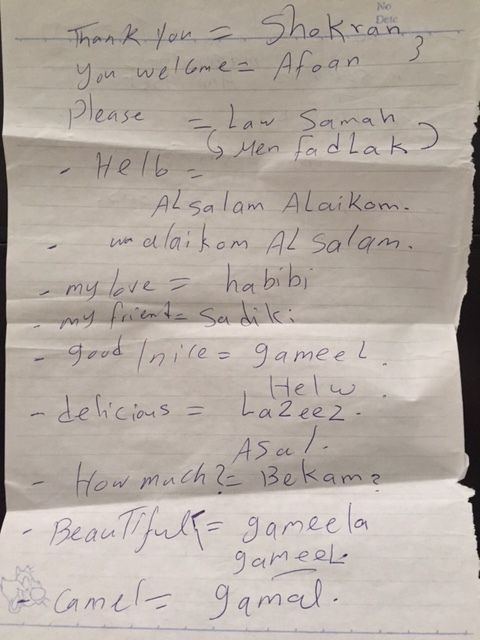 No
Date
Thank you = Shokran
you welcome = Afoan
please = Law Samah
Men fadLak
- Hello =
ALsalam ALaikom.
- w alaikom AL Salam.
- my love = habibi
- my friend = Sadiki
- good / nice = gameeL.
Helw.
- delicious = LaZeeZ.
ASal.
- How much? = Bekam?
- BeauTiful = gameela
gameeL
- camel = gamal.